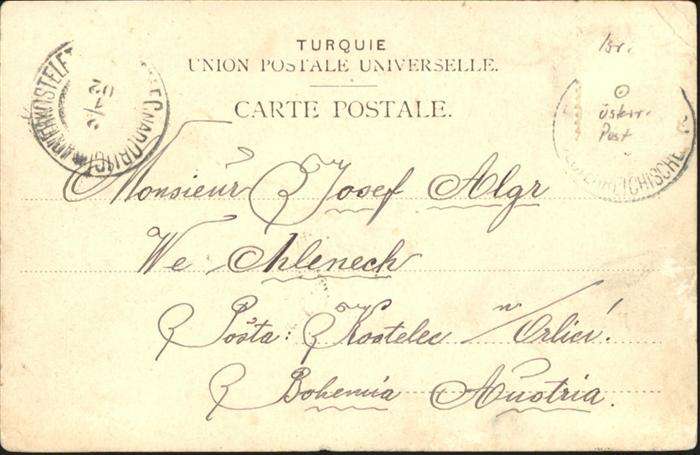 TURQUIE
UNION POSTALE UNIVERSELLE.
CARTE POSTALE.
2/4
02
Br.
österr.
Post
Monsieur Josef Algr
We Chlenech
Pošta: Kostelec n/Orlicí.
Bohemia Austria.